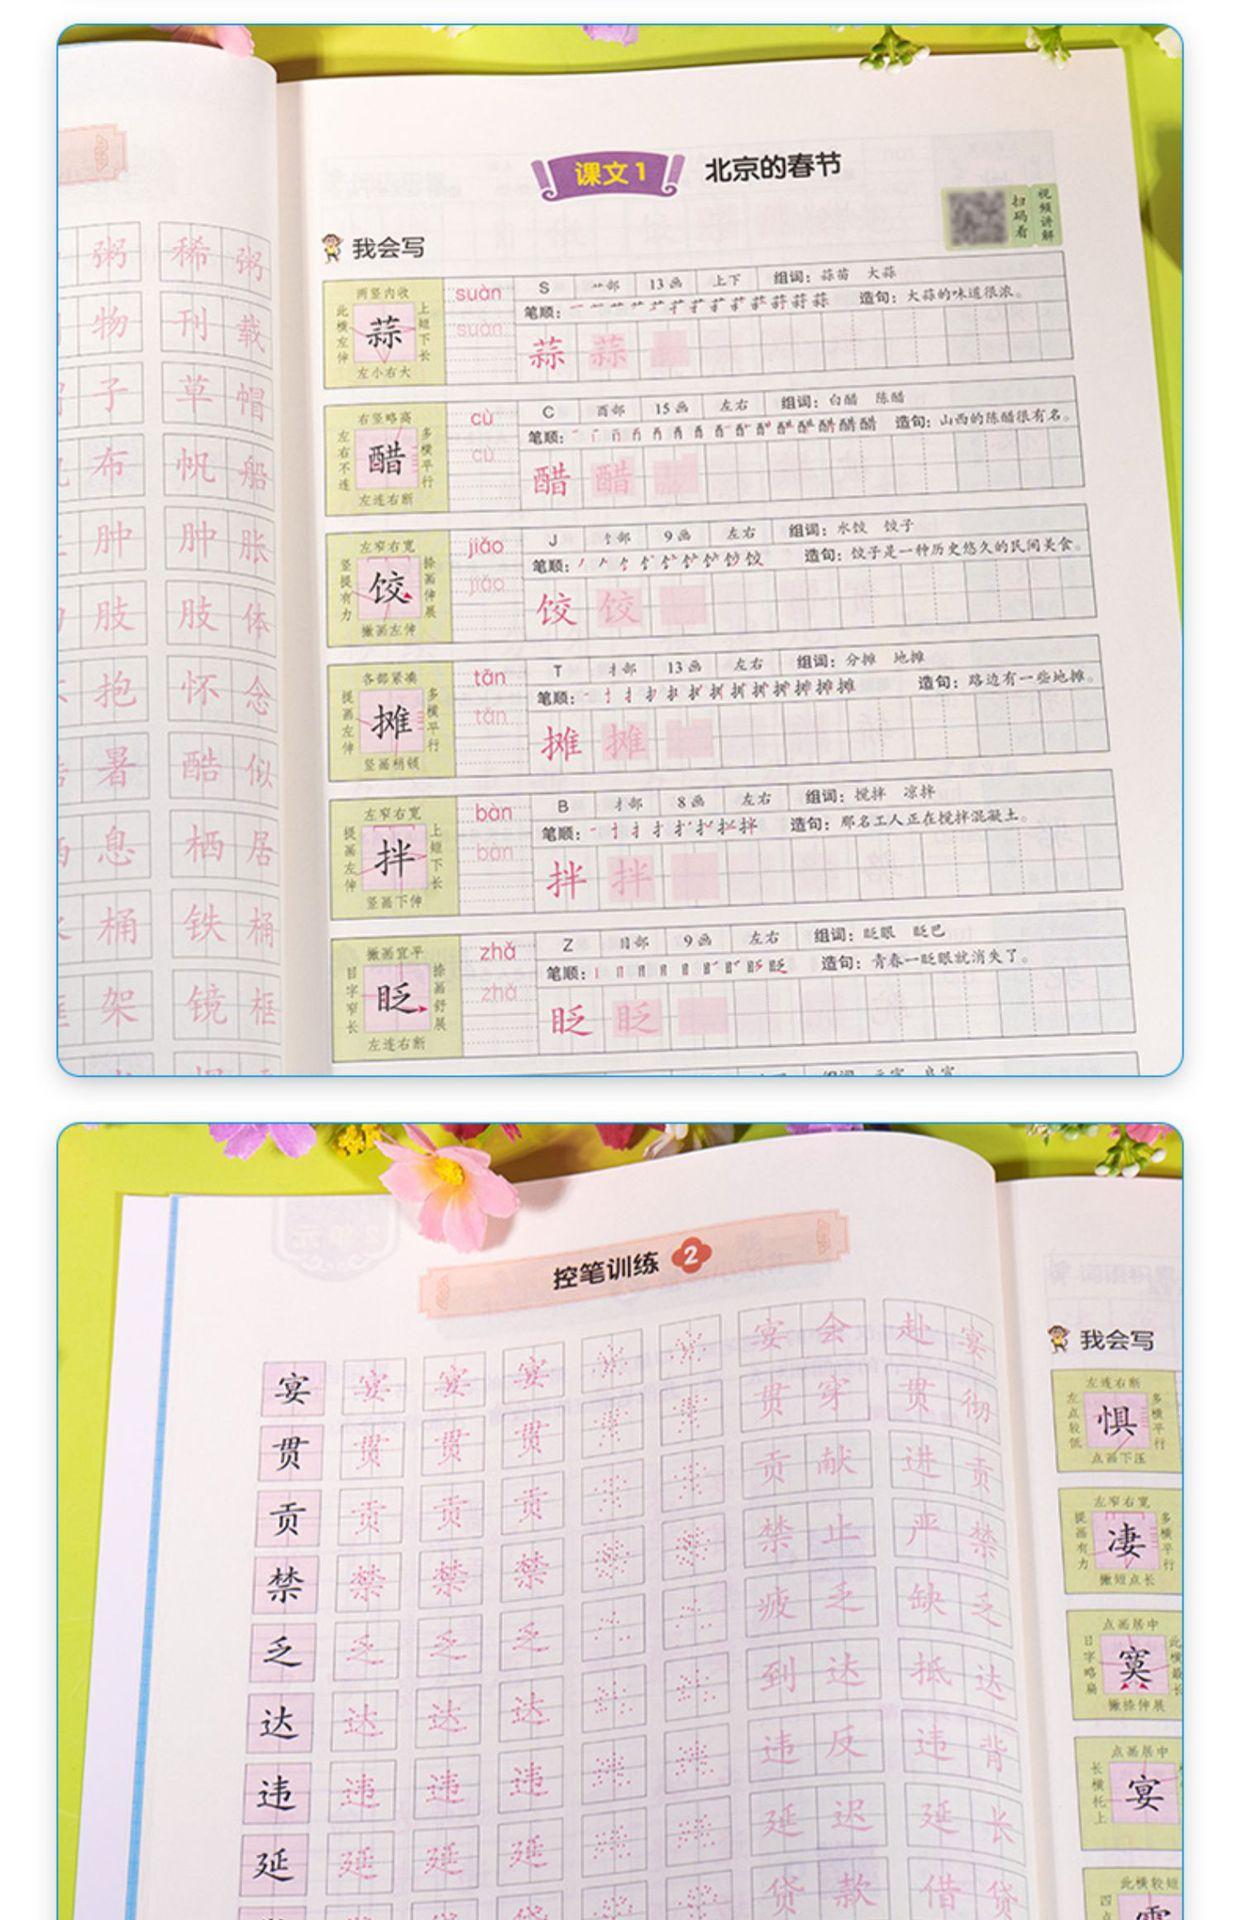 课文1 北京的春节
扫码看
视频讲解
我会写
两竖内收
此横左伸
蒜
上短下长
左小右大
suàn
suàn
S 艹部 13画 上下 组词：蒜苗 大蒜
笔顺： 造句：大蒜的味道很浓。
蒜 蒜
右竖略高
左右不连
醋
多横平行
左连右断
cù
cù
C 酉部 15画 左右 组词：白醋 陈醋
笔顺： 造句：山西的陈醋很有名。
醋 醋
左窄右宽
竖提有力
饺
捺画伸展
撇画左伸
jiǎo
jiǎo
J 饣部 9画 左右 组词：水饺 饺子
笔顺： 造句：饺子是一种历史悠久的民间美食。
饺 饺
各部紧凑
提画左伸
摊
多横平行
竖画稍倾
tān
tān
T 扌部 13画 左右 组词：分摊 地摊
笔顺： 造句：路边有一些地摊。
摊 摊
左窄右宽
提画左伸
拌
上短下长
竖画下伸
bàn
bàn
B 扌部 8画 左右 组词：搅拌 凉拌
笔顺： 造句：那名工人正在搅拌混凝土。
拌 拌
撇画宜平
目字窄长
眨
捺画舒展
左连右断
zhǎ
zhǎ
Z 目部 9画 左右 组词：眨眼 眨巴
笔顺： 造句：青春一眨眼就消失了。
眨 眨
粥 稀粥
物 刊载
子 草帽
布 帆船
肿 肿胀
肢 肢体
抱 怀念
暑 酷似
息 栖居
桶 铁桶
架 镜框
控笔训练 2
宴 宴 宴 宴 宴会 赴宴
贯 贯 贯 贯 贯穿 贯彻
贡 贡 贡 贡 贡献 进贡
禁 禁 禁 禁 禁止 严禁
乏 乏 乏 乏 疲乏 缺乏
达 达 达 达 到达 抵达
违 违 违 违 违反 违背
延 延 延 延 延迟 延长
贷款 借贷
我会写
左连右断
左点较低
惧
多横平行
点画下压
左窄右宽
提画有力
凄
多横平行
撇短点长
点画居中
日字略扁
寞
撇捺伸展
点画居中
长横托上
宴
此横较短